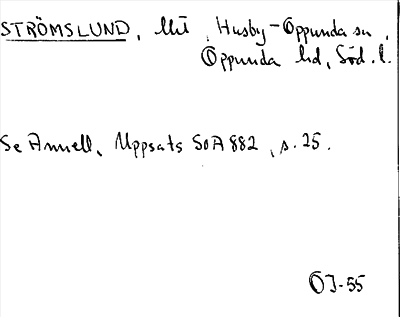 STRÖMSLUND, Husby-Oppunda sn,
Oppunda hd, Söd. l.
Se Annell, Uppsats SOA 882, s. 25.
ÖJ-55